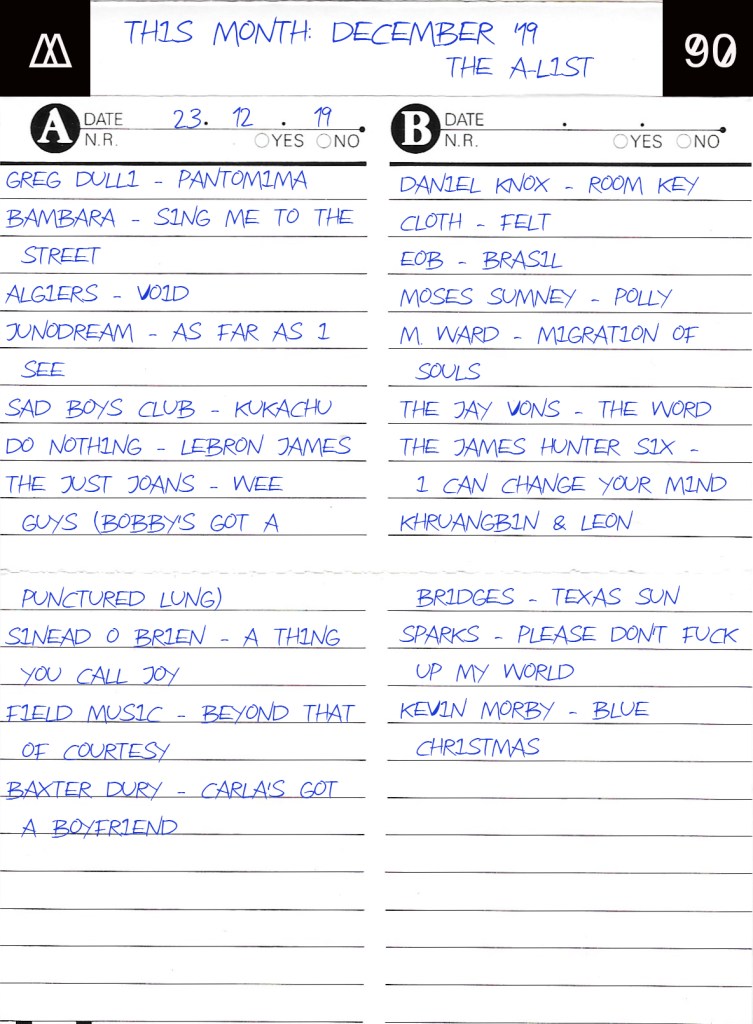 THIS MONTH: DECEMBER '19
THE A-LIST
90
A DATE 23. 12. 19
N.R. YES NO
GREG DULLI - PANTOMIMA
BAMBARA - SING ME TO THE
STREET
ALGIERS - VOID
JUNODREAM - AS FAR AS I
SEE
SAD BOYS CLUB - KUKACHU
DO NOTHING - LEBRON JAMES
THE JUST JOANS - WEE
GUYS (BOBBY'S GOT A
PUNCTURED LUNG)
SINEAD O BRIEN - A THING
YOU CALL JOY
FIELD MUSIC - BEYOND THAT
OF COURTESY
BAXTER DURY - CARLA'S GOT
A BOYFRIEND
B DATE . .
N.R. YES NO
DANIEL KNOX - ROOM KEY
CLOTH - FELT
EOB - BRASIL
MOSES SUMNEY - POLLY
M. WARD - MIGRATION OF
SOULS
THE JAY VONS - THE WORD
THE JAMES HUNTER SIX -
I CAN CHANGE YOUR MIND
KHRUANGBIN & LEON
BRIDGES - TEXAS SUN
SPARKS - PLEASE DON'T FUCK
UP MY WORLD
KEVIN MORBY - BLUE
CHRISTMAS